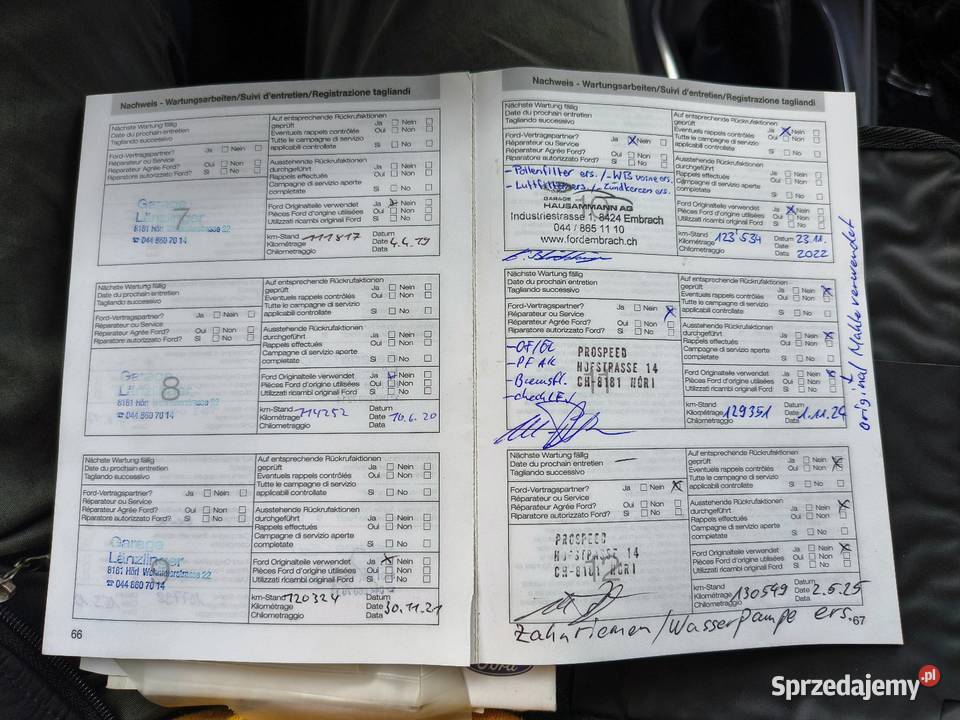 Nachweis - Wartungsarbeiten/Suivi d'entretien/Registrazione tagliandi
Nächste Wartung fällig
Date du prochain entretien
Tagliando successivo
Ford-Vertragspartner? Ja Nein
Réparateur ou Service
Réparateur Agréé Ford? Oui Non
Riparatore autorizzato Ford? Si No
Garage
Länzlinger
8181 Höri
☎ 044 860 70 14
7
Auf entsprechende Rückrufaktionen
geprüft Ja Nein
Eventuels rappels contrôlés Oui Non
Tutte le campagne di servizio
applicabili controllate Si No
Ausstehende Rückrufaktionen
durchgeführt Ja Nein
Rappels effectués Oui Non
Campagne di servizio aperte
completate Si No
Ford Originalteile verwendet Ja Nein
Pièces Ford d'origine utilisées Oui Non
Utilizzati ricambi original Ford Si No
km-Stand 111817 Datum
Kilométrage Date 4.4.19
Chilometraggio Data
Nächste Wartung fällig
Date du prochain entretien
Tagliando successivo
Ford-Vertragspartner? Ja Nein
Réparateur ou Service
Réparateur Agréé Ford? Oui Non
Riparatore autorizzato Ford? Si No
Garage
8
8181 Höri
☎ 044 860 70 14
Auf entsprechende Rückrufaktionen
geprüft Ja Nein
Eventuels rappels contrôlés Oui Non
Tutte le campagne di servizio
applicabili controllate Si No
Ausstehende Rückrufaktionen
durchgeführt Ja Nein
Rappels effectués Oui Non
Campagne di servizio aperte
completate Si No
Ford Originalteile verwendet Ja Nein
Pièces Ford d'origine utilisées Oui Non
Utilizzati ricambi original Ford Si No
km-Stand 114252 Datum
Kilométrage Date 10.6.20
Chilometraggio Data
Nächste Wartung fällig
Date du prochain entretien
Tagliando successivo
Ford-Vertragspartner? Ja Nein
Réparateur ou Service
Réparateur Agréé Ford? Oui Non
Riparatore autorizzato Ford? Si No
Garage
Länzlinger
8181 Höri
☎ 044 860 70 14
Auf entsprechende Rückrufaktionen
geprüft Ja Nein
Eventuels rappels contrôlés Oui Non
Tutte le campagne di servizio
applicabili controllate Si No
Ausstehende Rückrufaktionen
durchgeführt Ja Nein
Rappels effectués Oui Non
Campagne di servizio aperte
completate Si No
Ford Originalteile verwendet Ja Nein
Pièces Ford d'origine utilisées Oui Non
Utilizzati ricambi original Ford Si No
km-Stand 120324 Datum
Kilométrage Date 30.11.21
Chilometraggio Data
66
Nachweis - Wartungsarbeiten/Suivi d'entretien/Registrazione tagliandi
Nächste Wartung fällig
Date du prochain entretien
Tagliando successivo
Ford-Vertragspartner? Ja Nein
Réparateur ou Service
Réparateur Agréé Ford? Oui Non
Riparatore autorizzato Ford? Si No
- Pollenfilter ers. /- WB vorne ers.
- Luftfilter ers. /- Zündkerzen ers.
GARAGE
HAUSAMMANN AG
Industriestrasse 1, 8424 Embrach
044 / 865 11 10
www.fordembrach.ch
Auf entsprechende Rückrufaktionen
geprüft Ja Nein
Eventuels rappels contrôlés Oui Non
Tutte le campagne di servizio
applicabili controllate Si No
Ausstehende Rückrufaktionen
durchgeführt Ja Nein
Rappels effectués Oui Non
Campagne di servizio aperte
completate Si No
Ford Originalteile verwendet Ja Nein
Pièces Ford d'origine utilisées Oui Non
Utilizzati ricambi original Ford Si No
km-Stand 123'534 Datum 23.11.
Kilométrage Date 2022
Chilometraggio Data
Nächste Wartung fällig
Date du prochain entretien
Tagliando successivo
Ford-Vertragspartner? Ja Nein
Réparateur ou Service
Réparateur Agréé Ford? Oui Non
Riparatore autorizzato Ford? Si No
- Bremsfl.
PROSPEED
HJFSTRASSE 14
CH-8181 HÖRI
Auf entsprechende Rückrufaktionen
geprüft Ja Nein
Eventuels rappels contrôlés Oui Non
Tutte le campagne di servizio
applicabili controllate Si No
Ausstehende Rückrufaktionen
durchgeführt Ja Nein
Rappels effectués Oui Non
Campagne di servizio aperte
completate Si No
Ford Originalteile verwendet Ja Nein
Pièces Ford d'origine utilisées Oui Non
Utilizzati ricambi original Ford Si No
km-Stand Datum
Kilométrage 129351 Date 1.11.24
Chilometraggio Data
original / Mahle verwendet
Nächste Wartung fällig
Date du prochain entretien
Tagliando successivo
Ford-Vertragspartner? Ja Nein
Réparateur ou Service
Réparateur Agréé Ford? Oui Non
Riparatore autorizzato Ford? Si No
PROSPEED
HJFSTRASSE 14
CH-8181 HÖRI
Auf entsprechende Rückrufaktionen
geprüft Ja Nein
Eventuels rappels contrôlés Oui Non
Tutte le campagne di servizio
applicabili controllate Si No
Ausstehende Rückrufaktionen
durchgeführt Ja Nein
Rappels effectués Oui Non
Campagne di servizio aperte
completate Si No
Ford Originalteile verwendet Ja Nein
Pièces Ford d'origine utilisées Oui Non
Utilizzati ricambi original Ford Si No
km-Stand Datum
Kilométrage 130549 Date 2.5.25
Chilometraggio Data
Zahnriemen / Wasserpumpe ers.
67
Ford
Sprzedajemy.pl